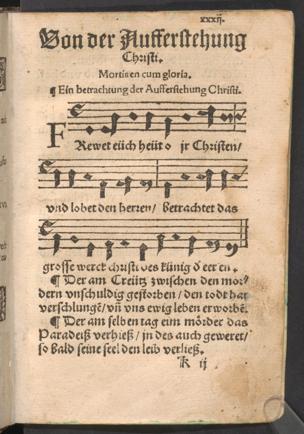 xxxij.
Von der Aufferstehung
Christi.
Mortis en cum gloria.
¶ Ein betrachtung der Aufferstehung Christi.
FRewet eüch heüt o jr Christen/
vnd lobet den herren/ betrachtet das
grosse werck christi des künig d eeren.
¶ Der am Creütz zwischen den mör⸗
dern vnschuldig gestorben/ den todt hat
verschlungē/ vñ vns ewig leben erworbē.
¶ Der am selben tag eim mörder das
Paradeiß verhieß/ in des auch geweret/
so bald seine seel den leib verließ.
K ij